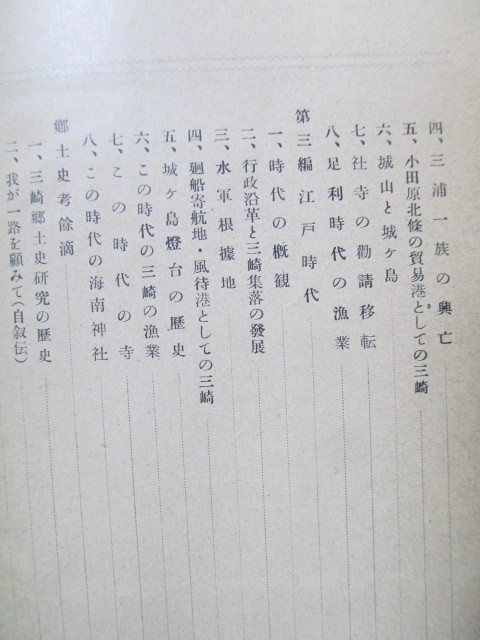 四、三浦一族の興亡
五、小田原北條の貿易港としての三崎
六、城山と城ヶ島
七、社寺の勸請移転
八、足利時代の漁業
第三編 江戸時代
一、時代の概観
二、行政沿革と三崎集落の發展
三、水軍根據地
四、廻船寄航地・風待港としての三崎
五、城ヶ島燈台の歴史
六、この時代の三崎の漁業
七、この時代の寺
八、この時代の海南神社
郷土史考餘滴
一、三崎郷土史研究の歴史
二、我が一路を顧みて(自叙伝)